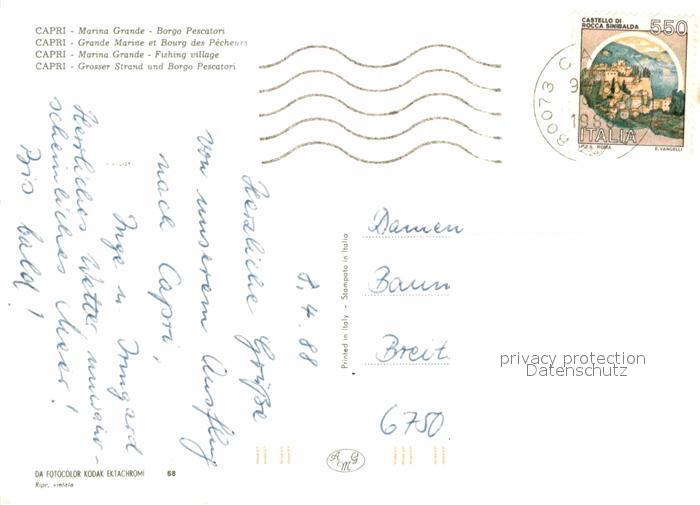 CAPRI - Marina Grande - Borgo Pescatori
CAPRI - Grande Marine et Bourg des Pêcheurs
CAPRI - Marina Grande - Fishing village
CAPRI - Grosser Strand und Borgo Pescatori
CASTELLO DI
ROCCA SINIBALDA
550
ITALIA
I.P.Z.S. ROMA
E. VANGELLI
80073 CA
8.4.88
Herzliche Grüße
von unserem Ausflug
nach Capri,
Inge u. Irmgard
Herrliches Wetter, unwahr-
scheinliches Meer!
Bis bald!
Printed in Italy - Stampato in Italia
Damen
Baum
Breit
6750
privacy protection
Datenschutz
DA FOTOCOLOR KODAK EKTACHROME 68
Ripr. vietata